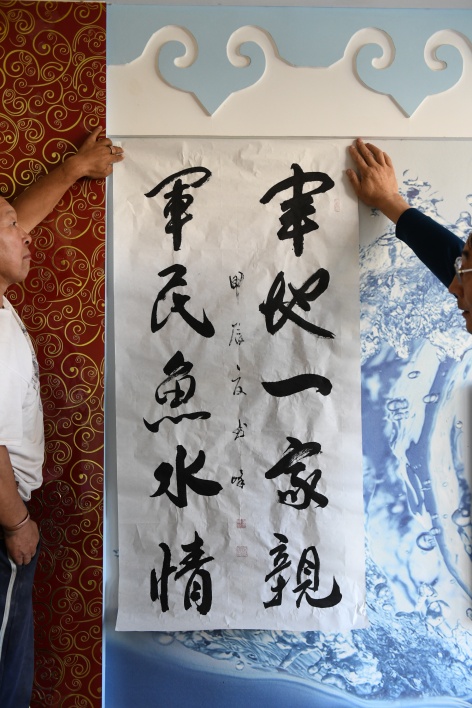 軍地一家親
軍民魚水情
甲辰夏